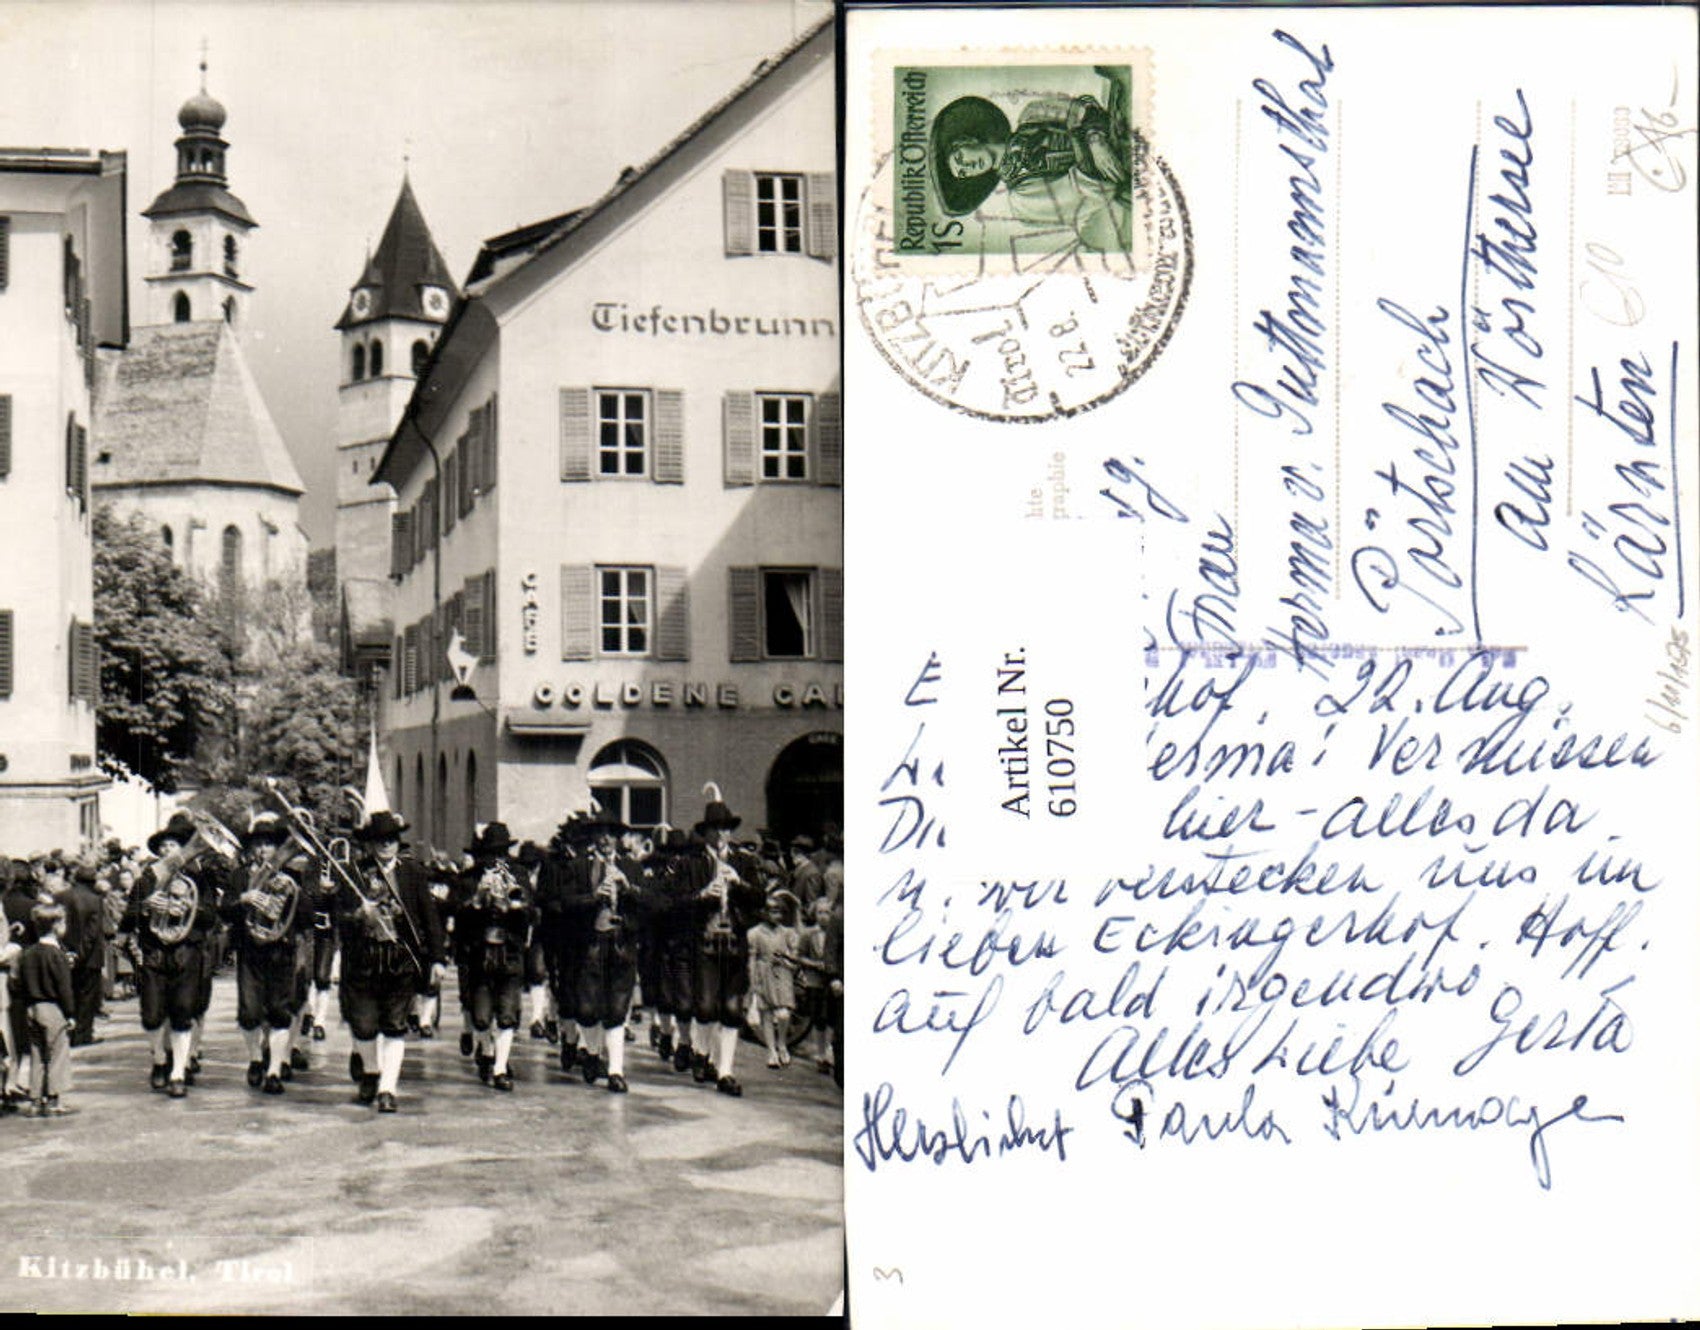 Tiefenbrunn
CAFE
GOLDENE GA
CAFE
Kitzbühel, Tirol
Republik Österreich
1S
KITZBÜHEL
Tirol
22.8.
Artikel Nr.
610750
hte
graphie
Frau
Herma v. Guttmannsthal
Pörtschach
am Wörthersee
Kärnten
E hof, 22. Aug.
Li erma! Vermissen
Di hier - alles da
u. wir verstecken uns im
lieben Eckingerhof. Hoff.
auf bald irgendwo
Alles Liebe Gerta
Herzlichst Paula
3